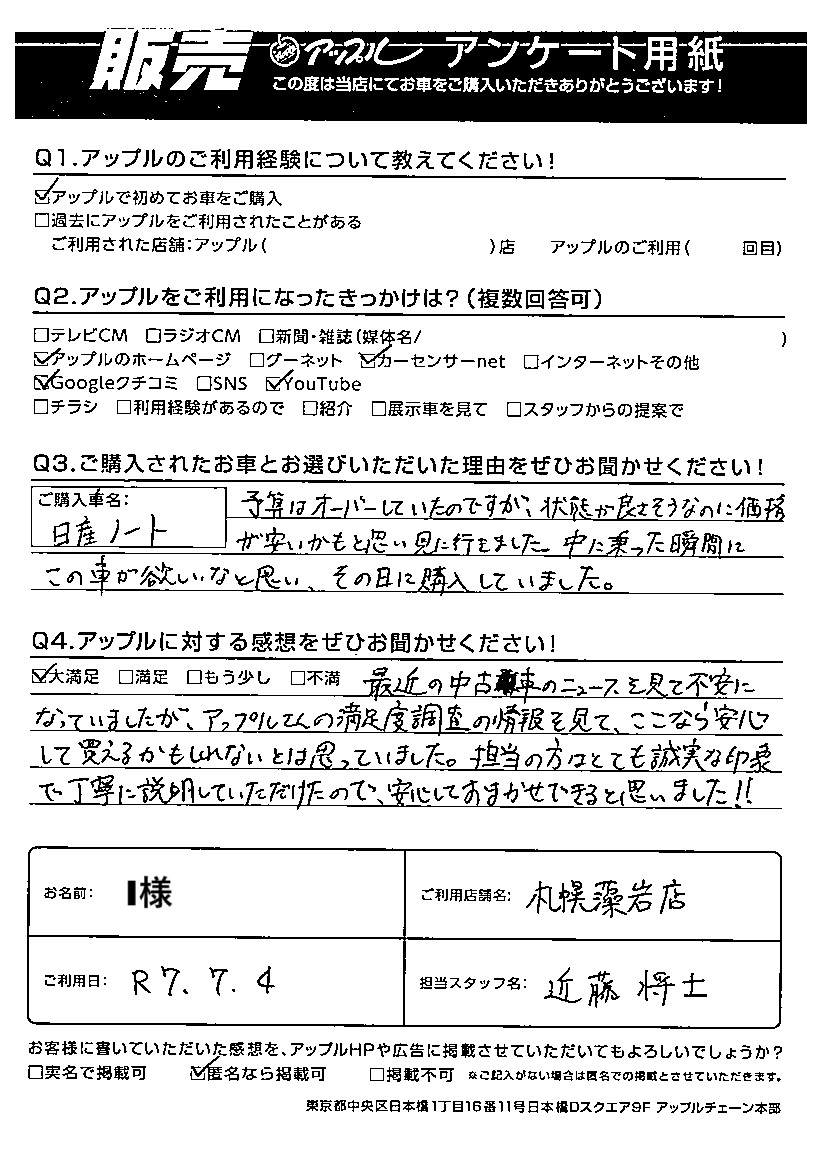 販売 アップル アンケート用紙
この度は当店にてお車をご購入いただきありがとうございます!
Q1.アップルのご利用経験について教えてください!
☑アップルで初めてお車をご購入
□過去にアップルをご利用されたことがある
ご利用された店舗:アップル( )店 アップルのご利用( 回目)
Q2.アップルをご利用になったきっかけは?(複数回答可)
□テレビCM □ラジオCM □新聞・雑誌(媒体名/ )
☑アップルのホームページ □グーネット ☑カーセンサーnet □インターネットその他
☑Googleクチコミ □SNS ☑YouTube
□チラシ □利用経験があるので □紹介 □展示車を見て □スタッフからの提案で
Q3.ご購入されたお車とお選びいただいた理由をぜひお聞かせください!
ご購入車名:
日産ノート
予算はオーバーしていたのですが、状態が良さそうなのに価格
が安いかもと思い見に行きました。中に乗った瞬間に
この車が欲しいなと思い、その日に購入していました。
Q4.アップルに対する感想をぜひお聞かせください!
☑大満足 □満足 □もう少し □不満 最近の中古車のニュースを見て不安に
なっていましたが、アップルさんの満足度調査の情報を見て、ここなら安心
して買えるかもしれないとは思っていました。担当の方はとても誠実な印象
で丁寧に説明していただけたので、安心しておまかせできると思いました!!
お名前: I様
ご利用店舗名: 札幌藻岩店
ご利用日: R7.7.4
担当スタッフ名: 近藤 将士
お客様に書いていただいた感想を、アップルHPや広告に掲載させていただいてもよろしいでしょうか?
□実名で掲載可 ☑匿名なら掲載可 □掲載不可 ※ご記入がない場合は匿名での掲載とさせていただきます。
東京都中央区日本橋1丁目16番11号日本橋Dスクエア9F アップルチェーン本部